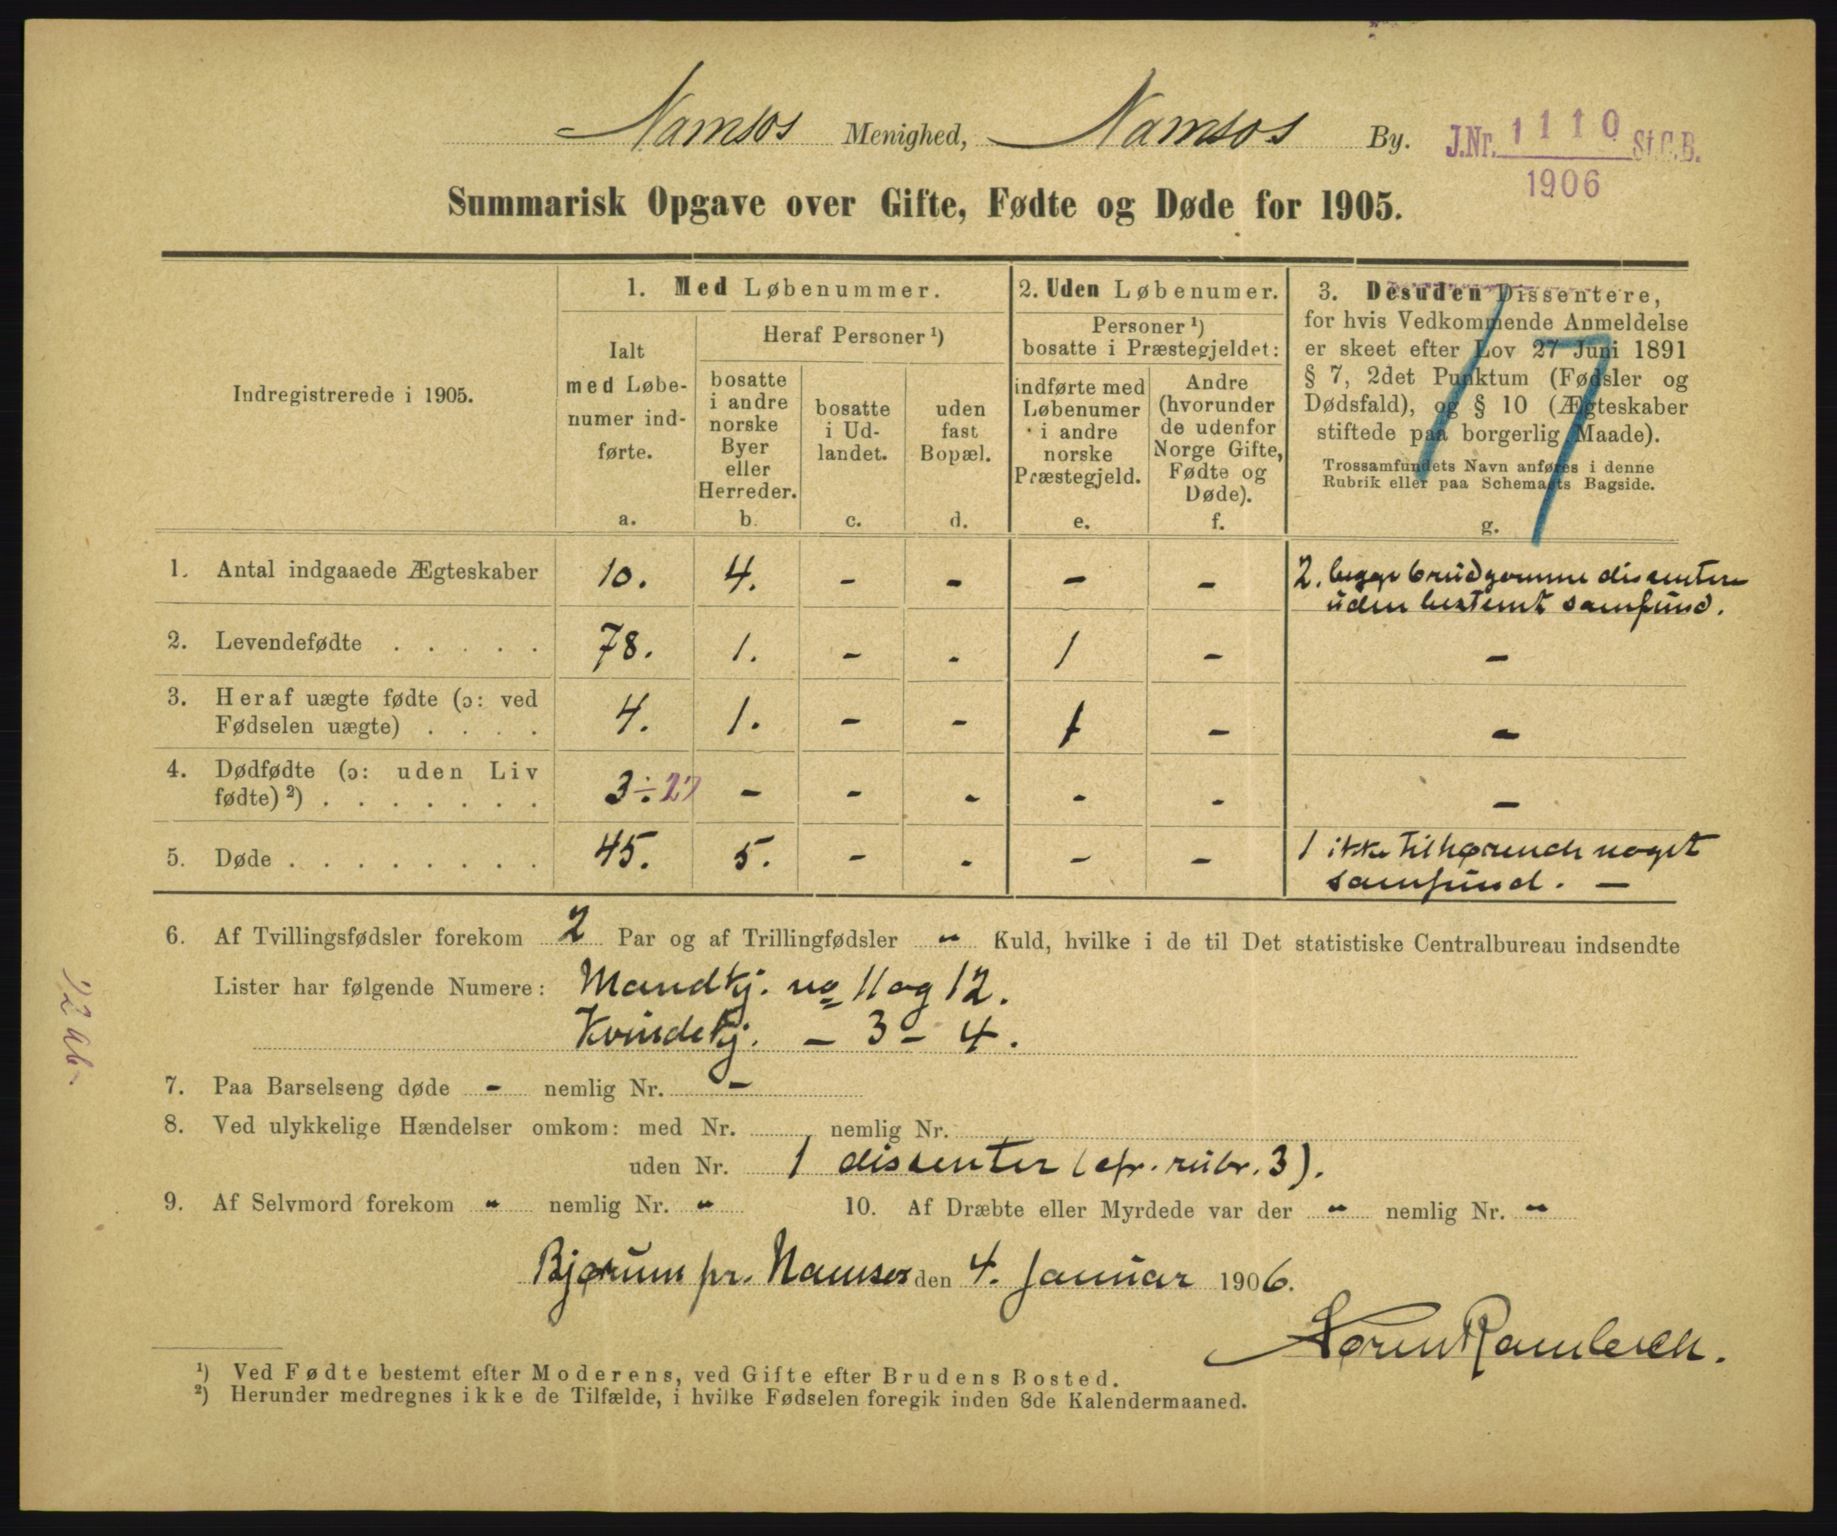 Namsos Menighed, Namsos By. J.Nr. 1110 St.C.B.
1906
Summarisk Opgave over Gifte, Fødte og Døde for 1905.
Indregistrerede i 1905.
1. Med Løbenummer.
Ialt
med Løbe-
numer ind-
førte.
a.
Heraf Personer ¹)
bosatte
i andre
norske
Byer
eller
Herreder.
b.
bosatte
i Ud-
landet.
c.
uden
fast
Bopæl.
d.
2. Uden Løbenumer.
Personer ¹)
bosatte i Præstegjeldet:
indførte med
Løbenumer
i andre
norske
Præstegjeld.
e.
Andre
(hvorunder
de udenfor
Norge Gifte,
Fødte og
Døde).
f.
3. Desuden Dissentere,
for hvis Vedkommende Anmeldelse
er skeet efter Lov 27 Juni 1891
§ 7, 2det Punktum (Fødsler og
Dødsfald), og § 10 (Ægteskaber
stiftede paa borgerlig Maade).
Trossamfundets Navn anføres i denne
Rubrik eller paa Schemaets Bagside.
g.
17
1. Antal indgaaede Ægteskaber 10. 4. - - - - 2. begge brudgomme dissentere
uden bestemt samfund.
2. Levendefødte . . . . . 78. 1. - - 1 - -
3. Heraf uægte fødte (ɔ: ved
Fødselen uægte) . . . . 4. 1. - - 1 - -
4. Dødfødte (ɔ: uden Liv
fødte) ²) . . . . . . . 3 ÷ 27 - - - - - -
5. Døde . . . . . . . . 45. 5. - - - - 1 ikke tilhørende noget
samfund. -
6. Af Tvillingsfødsler forekom 2 Par og af Trillingfødsler " Kuld, hvilke i de til Det statistiske Centralbureau indsendte
Lister har følgende Numere: Mandkj. no 11 og 12.
Kvindekj. - 3 - 4.
7. Paa Barselseng døde - nemlig Nr. -
8. Ved ulykkelige Hændelser omkom: med Nr. nemlig Nr.
uden Nr. 1 dissenter (cfr. rubr. 3).
9. Af Selvmord forekom " nemlig Nr. " 10. Af Dræbte eller Myrdede var der " nemlig Nr. "
Bjørum pr. Namsos den 4. Januar 1906.
Søren Rambech.
¹) Ved Fødte bestemt efter Moderens, ved Gifte efter Brudens Bosted.
²) Herunder medregnes ikke de Tilfælde, i hvilke Fødselen foregik inden 8de Kalendermaaned.